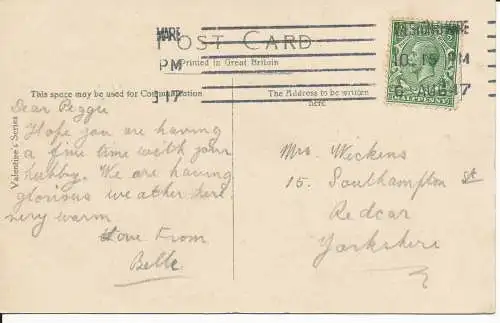 MARE
POST CARD
PM
Printed in Great Britain
10.15 PM
6 AUG 17
HALFPENNY
17
This space may be used for Communication.
The Address to be written
here
Valentine's Series
Dear Peggie
Hope you are having
a fine time with your
hubby. We are having
glorious weather here
very warm
Love From
Belle
Mrs. Wickens
15. Southampton St
Redcar
Yorkshire